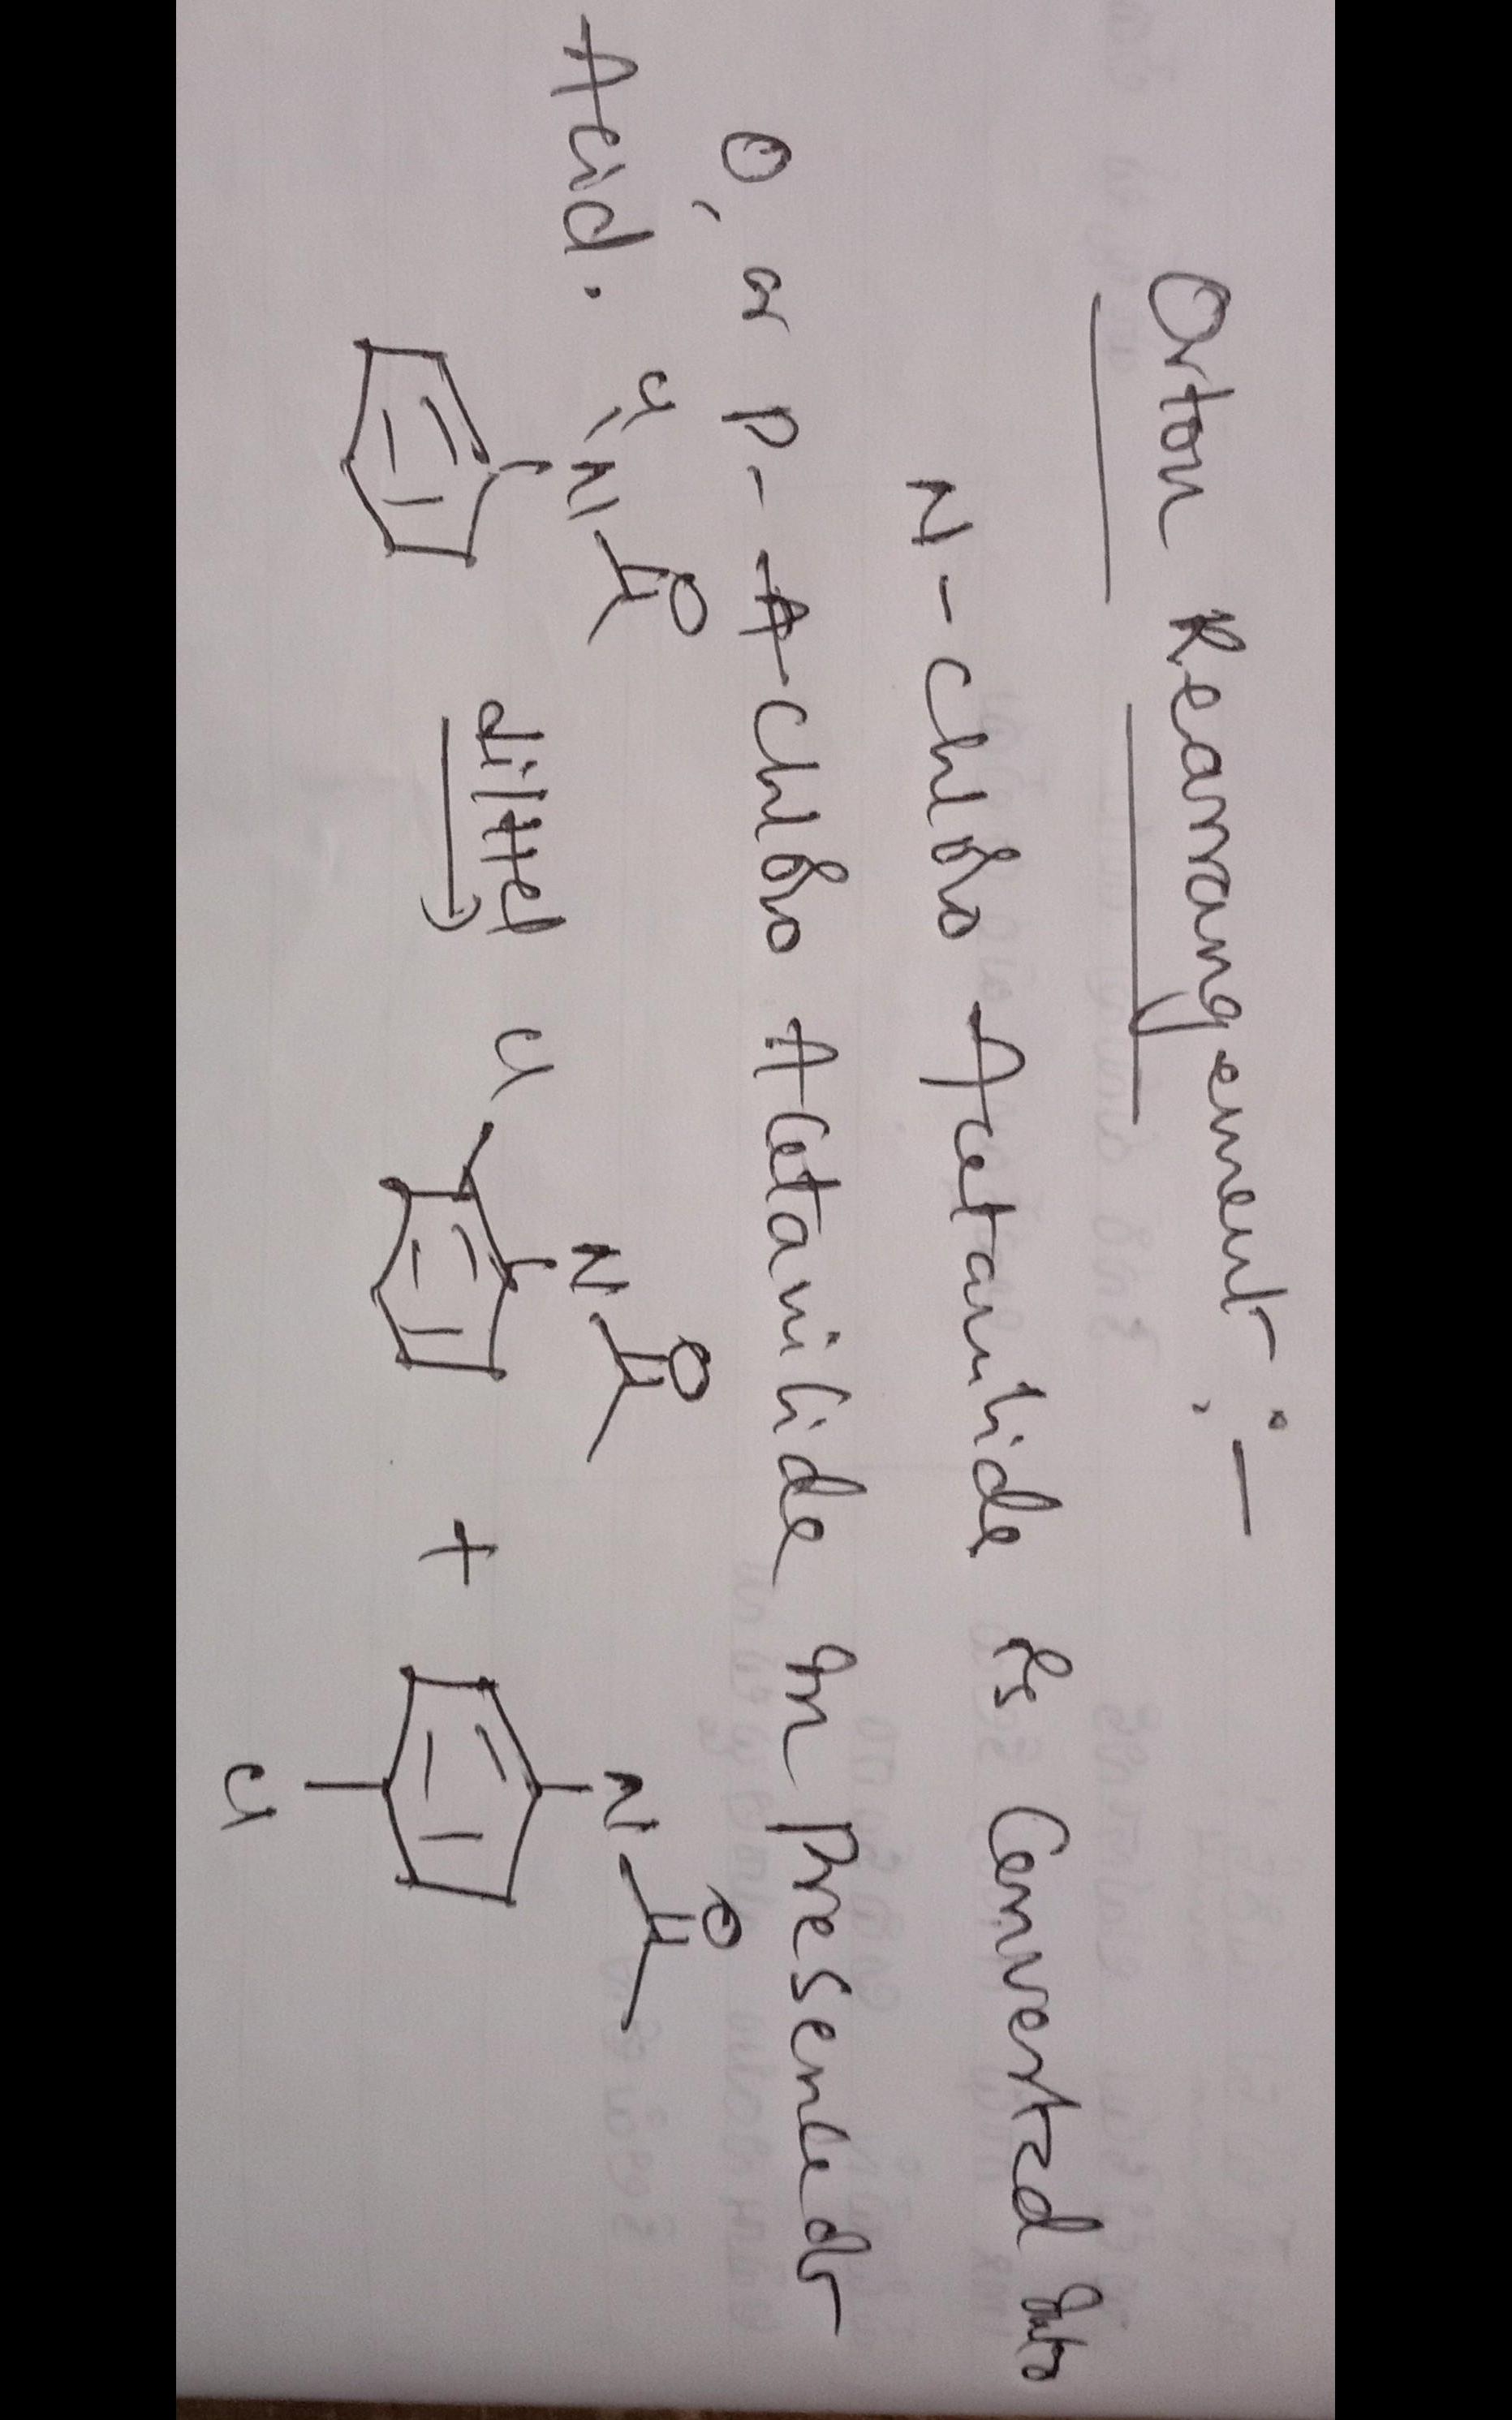 Orton Rearrangement :-
N-Chloro Acetanilide is Converted into
O, or P-A-Chloro Acetanilide in Presence of
Acid.
Cl N O dil HCl Cl N O + N O Cl